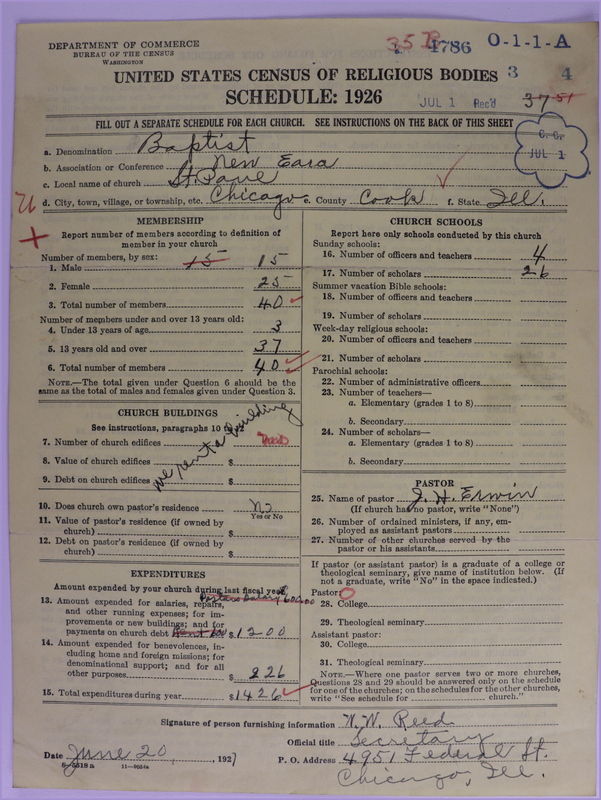 DEPARTMENT OF COMMERCE
BUREAU OF THE CENSUS
WASHINGTON
4786 0-1-1-A
UNITED STATES CENSUS OF RELIGIOUS BODIES 3 4
SCHEDULE: 1926
JUL 1 Rec'd 37
FILL OUT A SEPARATE SCHEDULE FOR EACH CHURCH. SEE INSTRUCTIONS ON THE BACK OF THIS SHEET
C. C.
JUL 1
a. Denomination Baptist
b. Association or Conference New Eara
c. Local name of church St Paul
d. City, town, village, or township, etc. Chicago e. County Cook f. State Ill.
MEMBERSHIP
Report number of members according to definition of
member in your church
Number of members, by sex:
1. Male 15 15
2. Female 25
3. Total number of members 40
Number of members under and over 13 years old:
4. Under 13 years of age 3
5. 13 years old and over 37
6. Total number of members 40
NOTE.—The total given under Question 6 should be the
same as the total of males and females given under Question 3.
CHURCH BUILDINGS
See instructions, paragraphs 10
7. Number of church edifices
8. Value of church edifices $
9. Debt on church edifices $
we rent a building
10. Does church own pastor's residence No
Yes or No
11. Value of pastor's residence (if owned by
church) $
12. Debt on pastor's residence (if owned by
church) $
EXPENDITURES
Amount expended by your church during last fiscal year
Pastors Salary 600.00
13. Amount expended for salaries, repairs,
and other running expenses; for im-
provements or new buildings; and for
payments on church debt Rent 600 $ 1200
14. Amount expended for benevolences, in-
cluding home and foreign missions; for
denominational support; and for all
other purposes 226
15. Total expenditures during year $ 1426
CHURCH SCHOOLS
Report here only schools conducted by this church
Sunday schools:
16. Number of officers and teachers 4
17. Number of scholars 26
Summer vacation Bible schools:
18. Number of officers and teachers
19. Number of scholars
Week-day religious schools:
20. Number of officers and teachers
21. Number of scholars
Parochial schools:
22. Number of administrative officers
23. Number of teachers—
a. Elementary (grades 1 to 8)
b. Secondary
24. Number of scholars—
a. Elementary (grades 1 to 8)
b. Secondary
PASTOR
25. Name of pastor J. H. Erwin
(If church has no pastor, write "None")
26. Number of ordained ministers, if any, em-
ployed as assistant pastors
27. Number of other churches served by the
pastor or his assistants
If pastor (or assistant pastor) is a graduate of a college or
theological seminary, give name of institution below. (If
not a graduate, write "No" in the space indicated.)
Pastor:
28. College
29. Theological seminary
Assistant pastor:
30. College
31. Theological seminary
NOTE.—Where one pastor serves two or more churches,
Questions 28 and 29 should be answered only on the schedule
for one of the churches; on the schedules for the other churches,
write "See schedule for church."
Signature of person furnishing information W. W. Reed
Official title Secretary
Date June 20, 1927 P. O. Address 4951 Federal St.
Chicago, Ill.
8-5518a 11-9054a